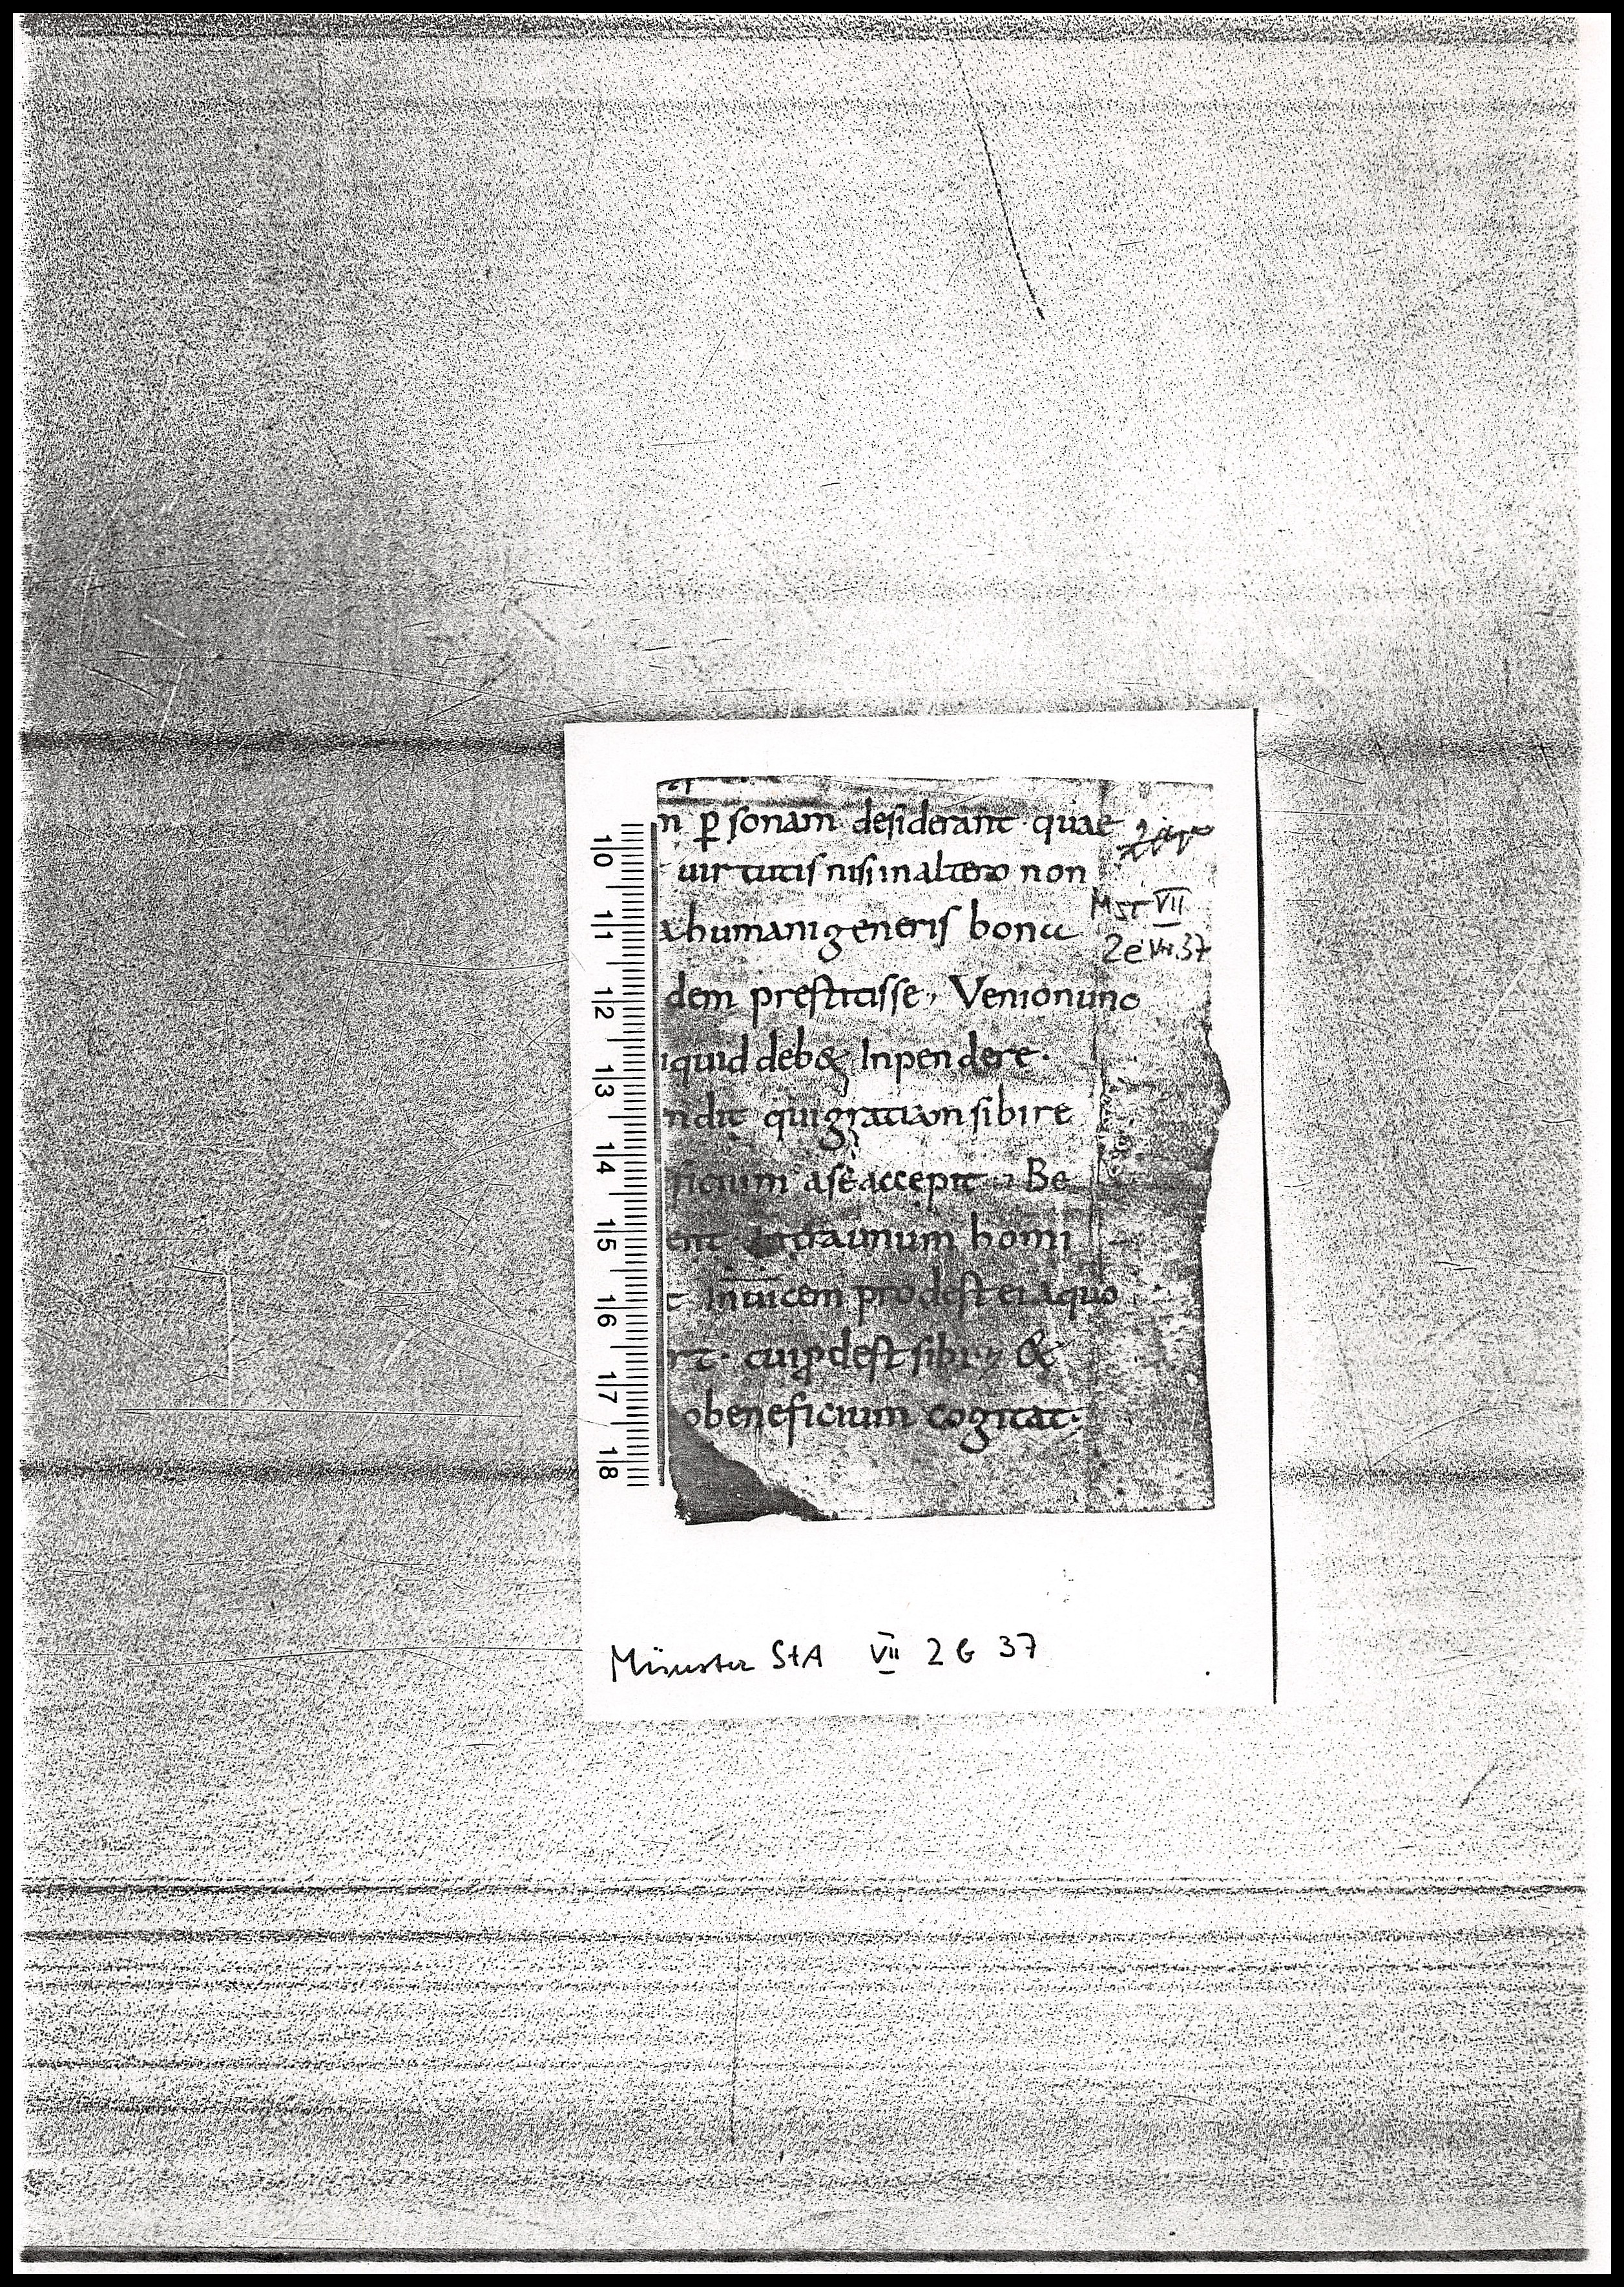 n p̱sonam desiderant · quae
uirtutis nisi in altero non
a humani generis bona
dem prestitisse, Venio nunc
iquid deb& Inpendere ·
ndit qui gratiam sibi re
ficium a se accepit Be
ent unum homi
t Inuicem prodest ei a quo
rt · cui ꝓdest sibi &
obeneficium cogitat ·
Mst VII
2e VII.37
10
11
12
13
14
15
16
17
18
Münster StA VII 2 e 37